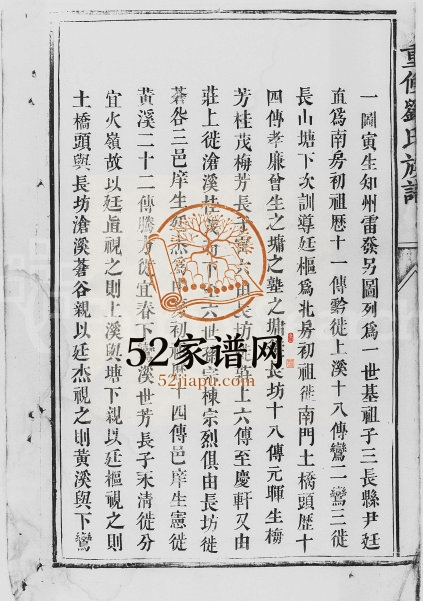 重修劉氏族譜
一圖寅生知州雷發另圖列爲一世基祖子三長縣尹廷
直爲南房初祖歴十一傳黔徙上溪十八傳鸞二鸞三徙
長山塘下次訓導廷樞爲北房初祖徙南門土橋頭歴十
四傳孝廉曾生之墉之塾之墉 長坊十八傳元暉生梅
芳桂茂梅芳長 六由長坊 上六傳至慶軒又由
莊上徙滄溪桂 下 六世 宗棟宗烈俱由長坊徙
蒼谷三邑庠生廷杰爲 初祖 十四傳邑庠生憲徙
黄溪二十二傳騰芳徙宜春下 溪世芳長子永清徙分
宜火嶺故以廷直視之則上溪與塘下親以廷樞視之則
土橋頭與長坊滄溪蒼谷親以廷杰視之則黄溪與下鸞
52家谱网
52jiapu.com